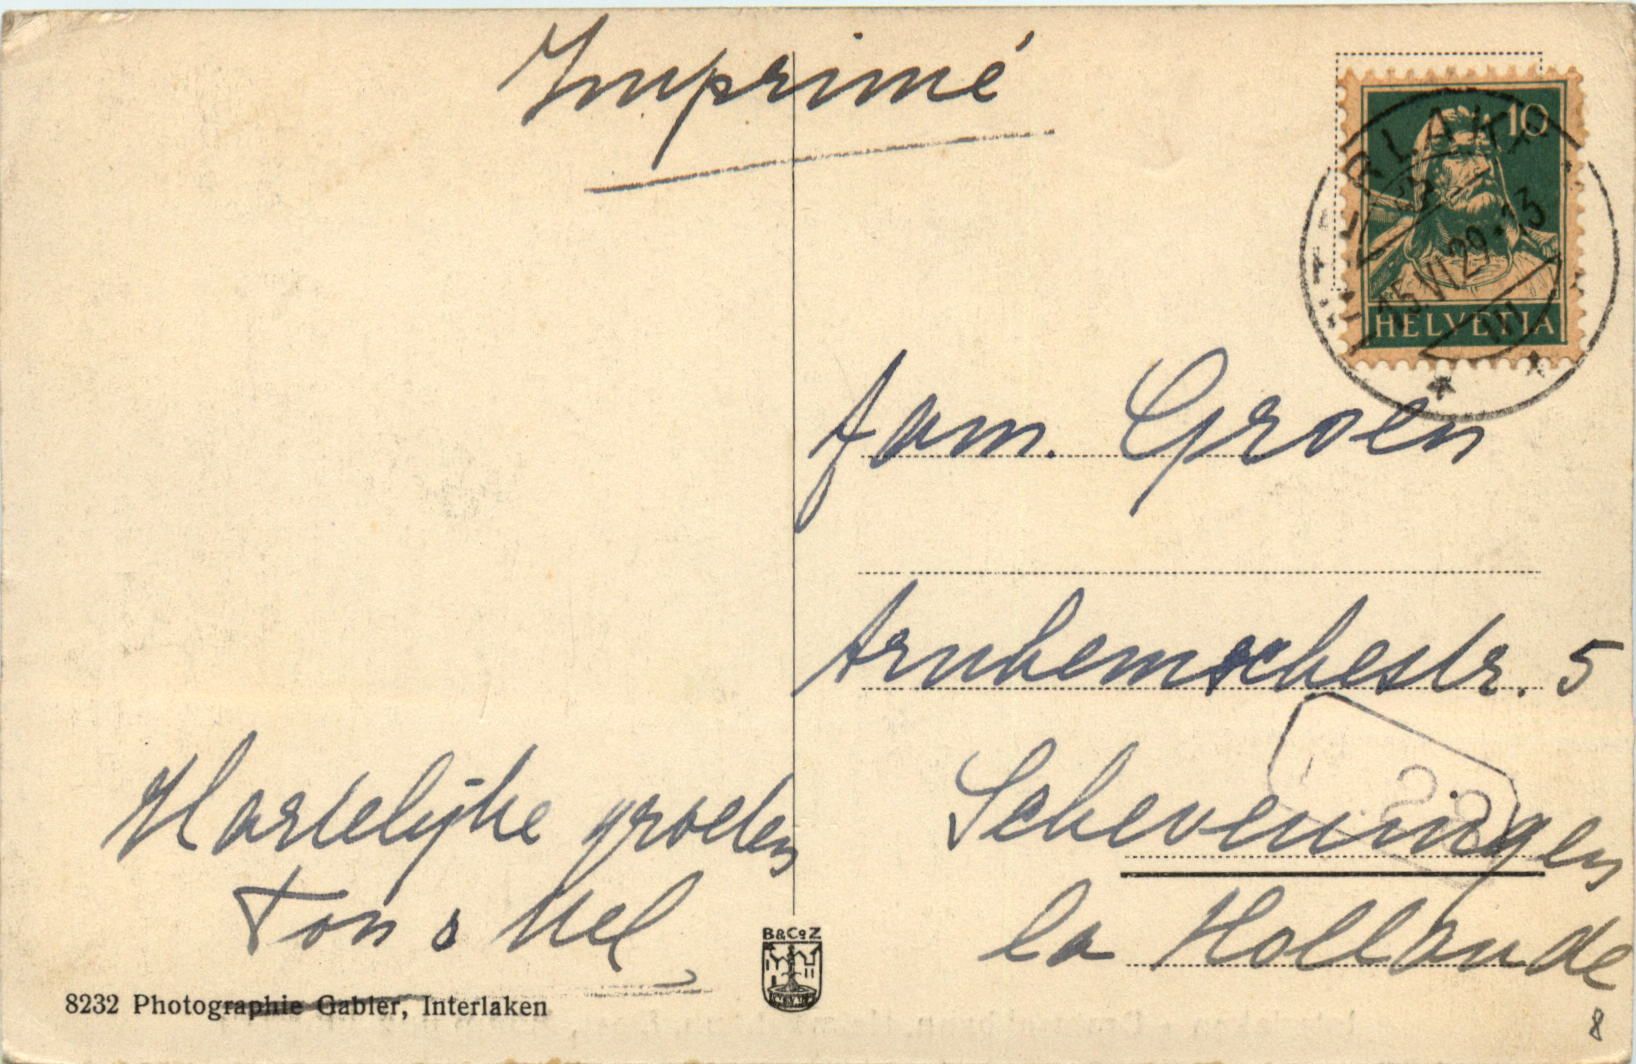 Imprimé
10
INTERLAKEN
15.VI.29.-13
HELVETIA
Fam. Groen
Arnhemschestr. 5
Scheveningen
la Hollande
Hartelijke groeten
Ton & Nel
B&CoZ
8232 Photographie Gabler, Interlaken
8